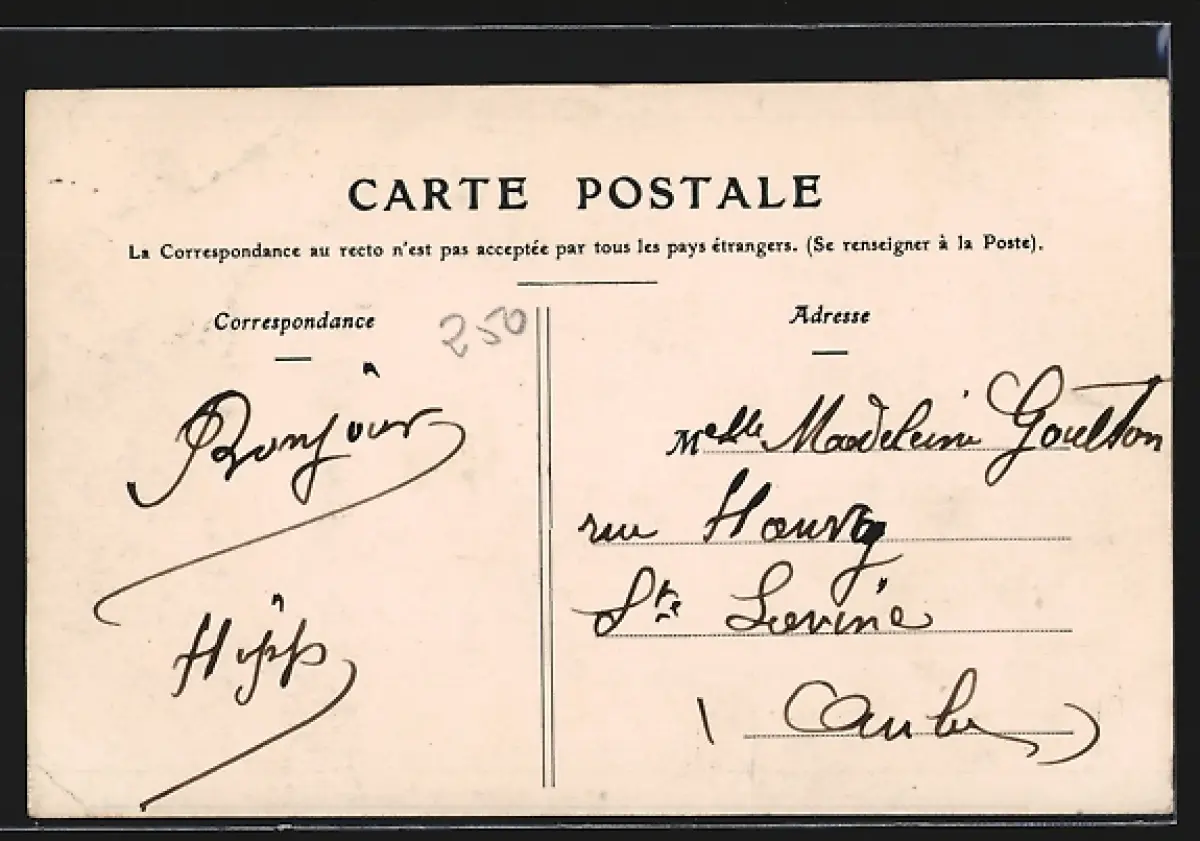 CARTE POSTALE
La Correspondance au recto n'est pas acceptée par tous les pays étrangers. (Se renseigner à la Poste).
Correspondance
250
Bonjour
Adresse
Melle Madeleine
rue
Ste Savine
(Aube)